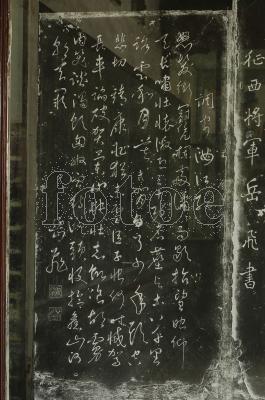 征西將軍岳飛書
調寄滿江紅
怒髮衝冠憑欄處瀟瀟雨歇抬望眼仰
天長嘯壯懷激烈三十功名塵與土八千里
路雲和月莫等閒白了少年頭空
悲切靖康恥猶未雪臣子恨何時滅駕
長車踏破賀蘭山缺壯志飢餐胡虜
肉笑談渴飲匈奴血待從頭收拾舊山河
朝天闕
岳飛
fotoe